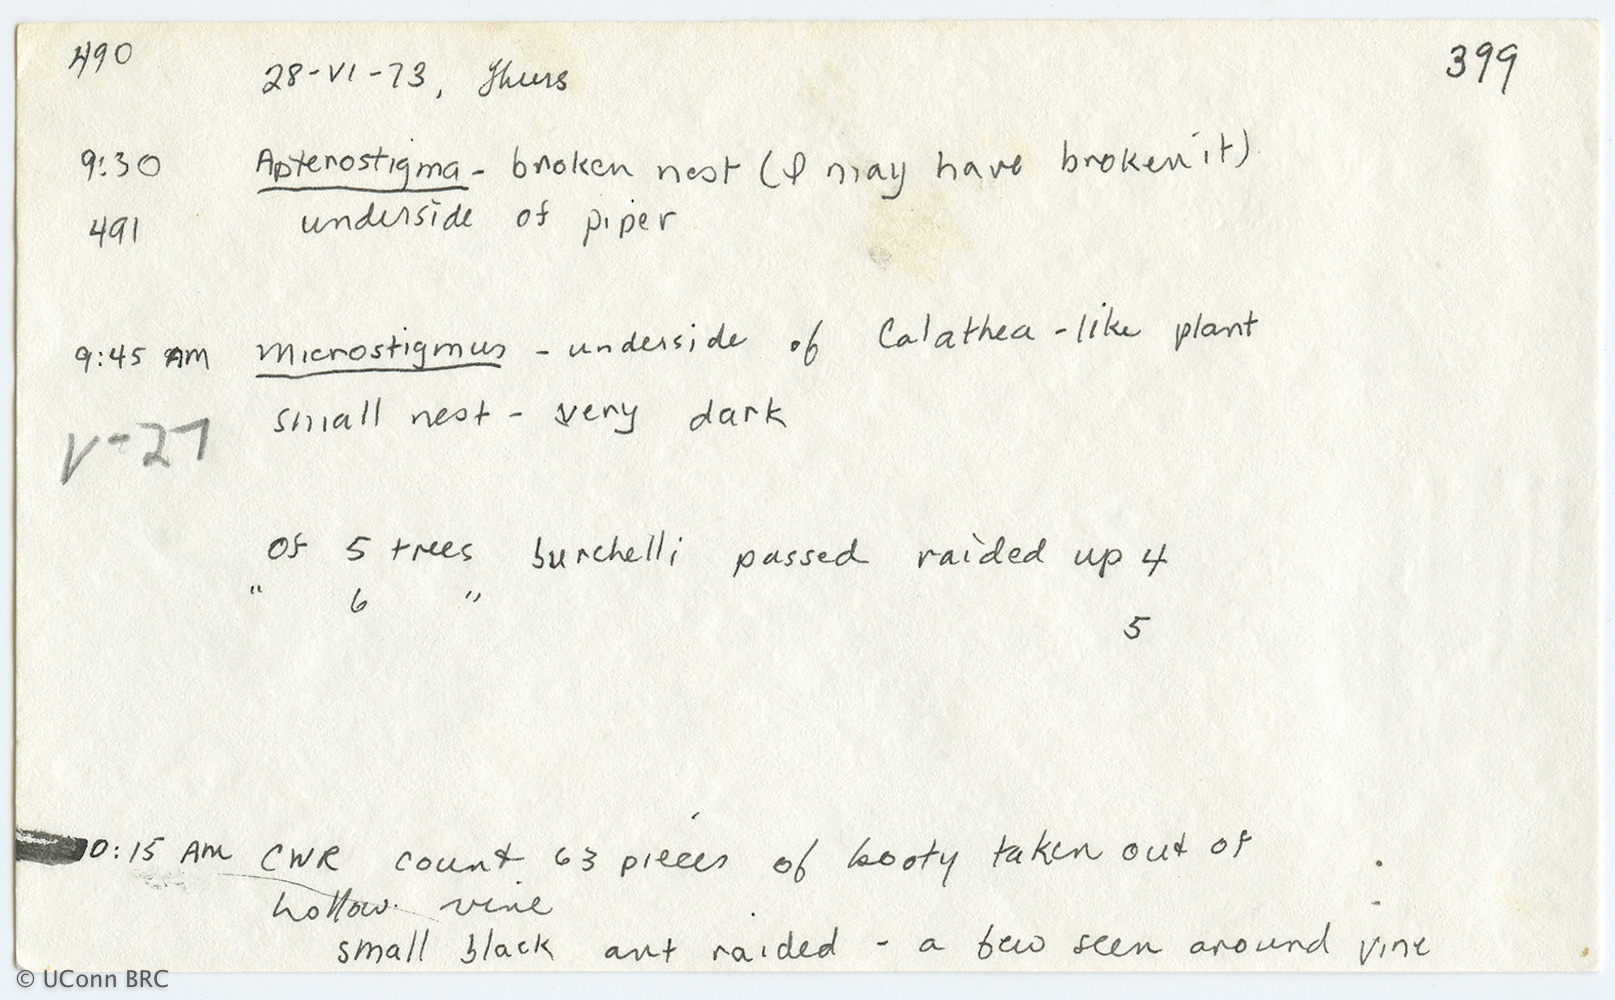 490
399
28-VI-73, Thurs
9:30 Apterostigma - broken nest (I may have broken it)
491 underside of piper
9:45 AM Microstigmus - underside of Calathea-like plant
small nest - very dark
V-27
Of 5 trees burchelli passed raided up 4
" 6 "
5
10:15 AM CWR count 63 pieces of booty taken out of
hollow vine
small black ant raided - a few seen around vine
© UConn BRC